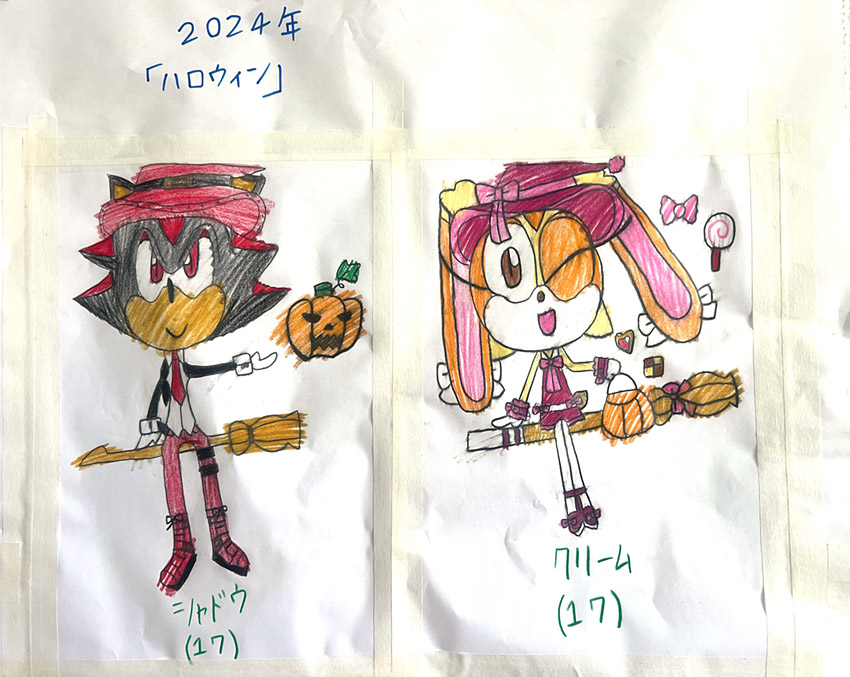 2024年
「ハロウィン」
シャドウ
(17)
クリーム
(17)